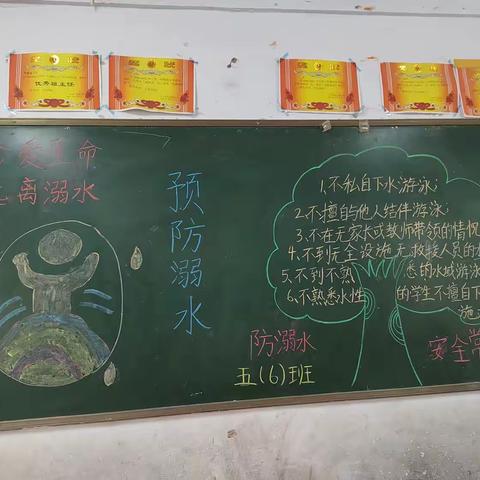 优秀班主任
爱生命
远离溺水
预防溺水
1、不私自下水游泳;
2、不擅自与他人结伴游泳;
3、不在无家长或教师带领的情况
4、不到无全设施无救援人员的
5、不到不熟悉的水域游泳
6、不熟悉水性的学生不擅自下
施
防溺水
安全常
五(6)班